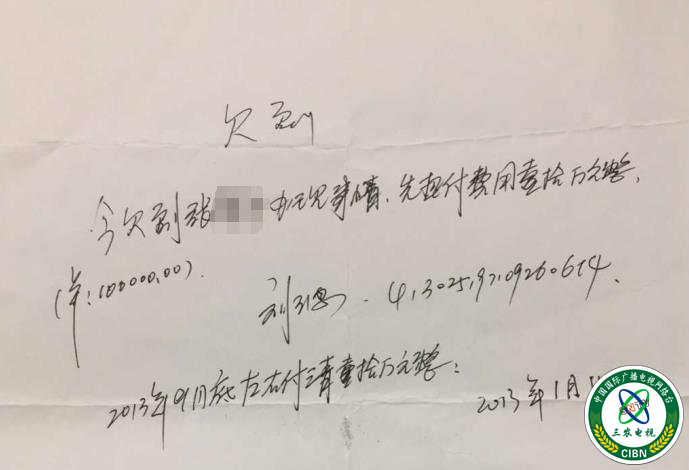 欠到
今欠到张 办理事情,先垫付费用壹拾万元整,
(¥:100000,00).
刘 413025197109260614.
2013年9月底左右付清壹拾万元整.
2013年1月
中国国际广播电视网络台
三农电视
CIBN